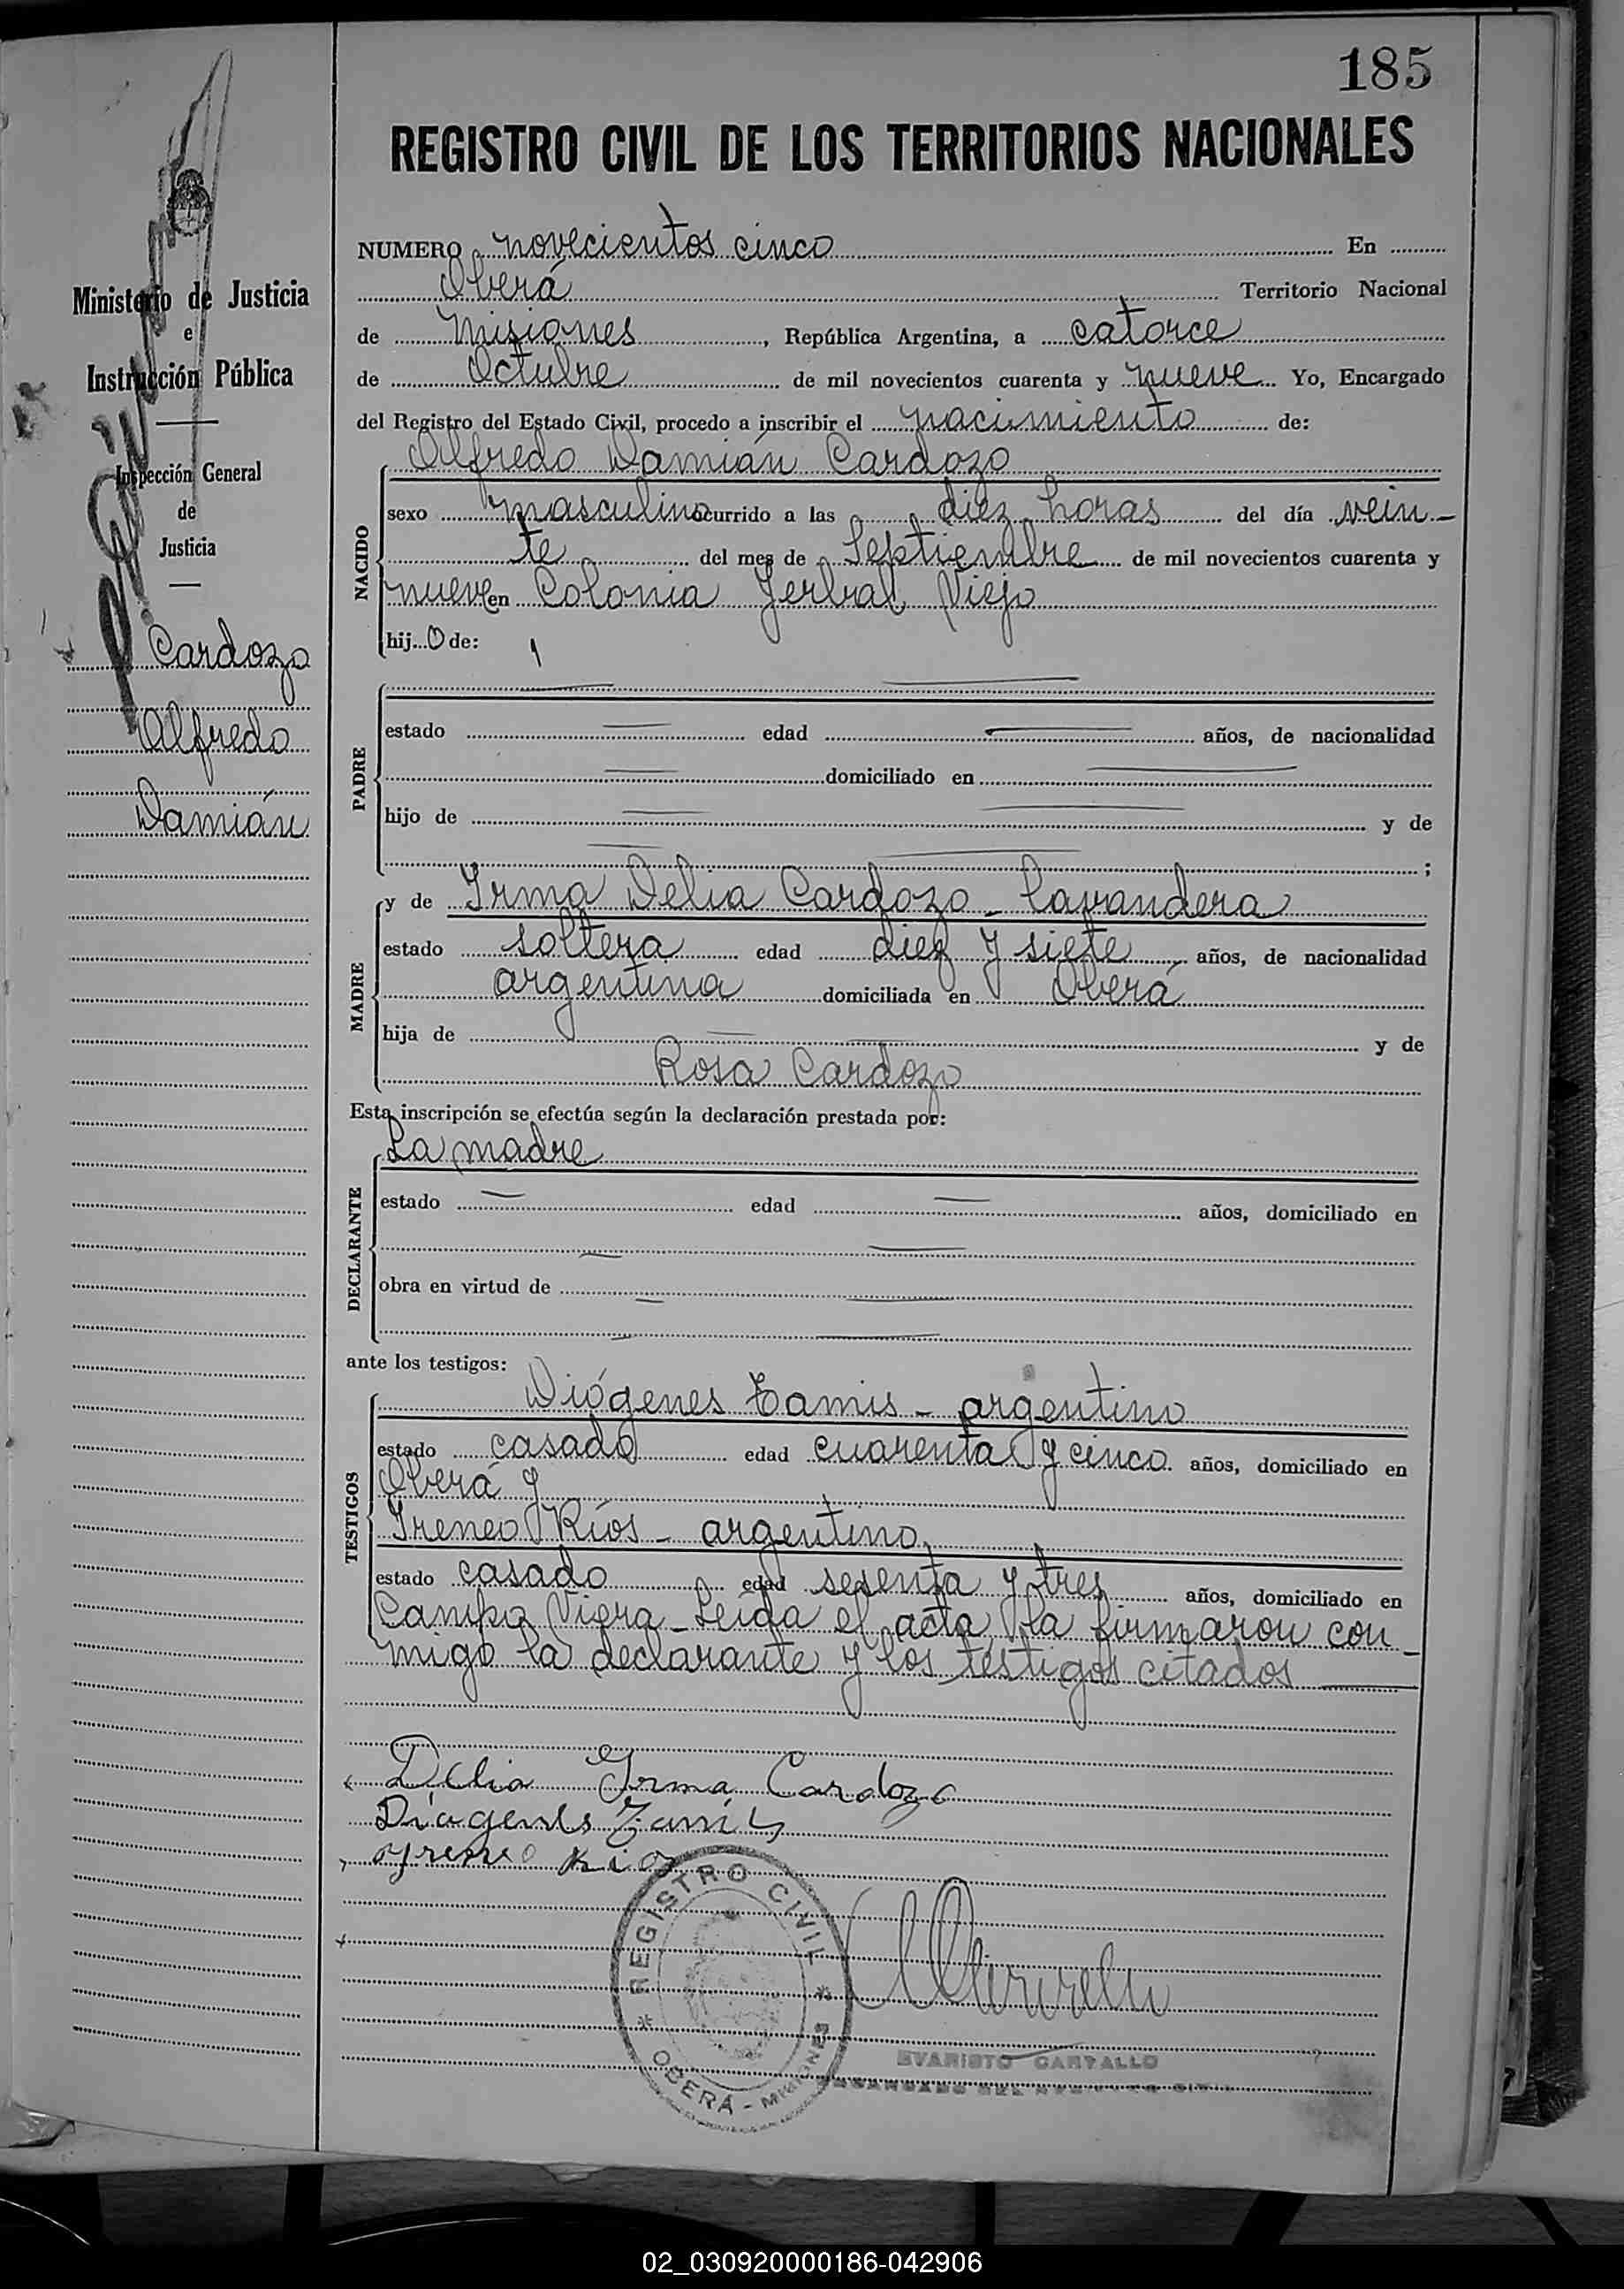 185
REGISTRO CIVIL DE LOS TERRITORIOS NACIONALES
Ministerio de Justicia
e
Instrucción Pública
Inspección General
de
Justicia
Cardozo
Alfredo
Damián
NUMERO novecientos cinco En
Oberá Territorio Nacional
de Misiones, República Argentina, a catorce
de Octubre de mil novecientos cuarenta y nueve Yo, Encargado
del Registro del Estado Civil, procedo a inscribir el nacimiento de:
NACIDO
Alfredo Damián Cardozo
sexo masculino ocurrido a las diez horas del día vein-
te del mes de Septiembre de mil novecientos cuarenta y
nueve en Colonia Yerbal Viejo
hijo de:
PADRE
estado edad años, de nacionalidad
domiciliado en
hijo de y de
;
MADRE
y de Irma Delia Cardozo - lavandera
estado soltera edad diez y siete, años, de nacionalidad
argentina domiciliada en Oberá
hija de y de
Rosa Cardozo
Esta inscripción se efectúa según la declaración prestada por:
DECLARANTE
La madre
estado edad años, domiciliado en
obra en virtud de
ante los testigos:
TESTIGOS
Diógenes - argentino
estado casado edad cuarenta y cinco años, domiciliado en
Oberá y
Ireneo Ríos - argentino,
estado casado edad sesenta y tres años, domiciliado en
Campo Viera - Leída el acta, la firmaron con-
migo la declarante y los testigos citados
Delia Irma Cardozo
Diogenes
REGISTRO CIVIL
OBERÁ - MISIONES
EVARISTO
ENCARGADO DEL REGISTRO CIVIL
02_030920000186-042906